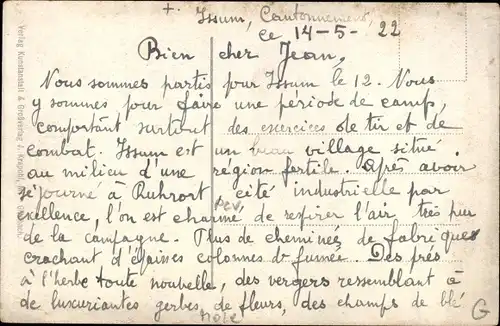 + Issum, Cantonnement,
ce 14-5-22
Bien cher Jean,
Nous sommes partis pour Issum le 12. Nous
y sommes pour faire une période de camp,
comportant surtout des exercices de tir et de
combat. Issum est un beau village situé
au milieu d'une région fertile. Après avoir
séjourné à Ruhrort cité industrielle par
excellence, l'on est charmé de respirer l'air très pur
de la campagne. Plus de cheminées de fabriques
crachant d'épaisses colonnes de fumée. Des prés
à l'herbe toute nouvelle, des vergers ressemblant à
de luxuriantes gerbes de fleurs, des champs de blé
G
Verlag Kunstanstalt & Großverlag